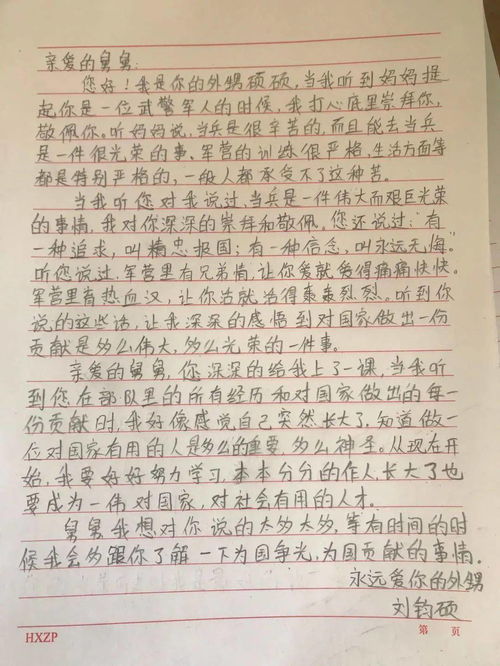 亲爱的舅舅：
您好！我是你的外甥硕硕，当我听到妈妈提
起你是一位武警军人的时候，我打心底里崇拜你，
敬佩你。听妈妈说，当兵是很辛苦的，而且能去当兵
是一件很光荣的事、军营的训练很严格，生活方面等
都是特别严格的，一般人都承受不了这种苦。
当我听您对我说过，当兵是一件伟大而艰巨光荣
的事情，我对你深深的崇拜和敬佩。您还说过：有
一种追求，叫精忠报国；有一种信念，叫永远无悔。
听您说过，军营里有兄弟情，让你爱就爱得痛痛快快。
军营里有热血汉，让你活就活得轰轰烈烈。听到你
说的这些话，让我深深的感悟到对国家做出一份
贡献是多么伟大，多么光荣的一件事。
亲爱的舅舅，您深深的给我上了一课，当我听
到您在部队里的所有经历和对国家做出的每一
份贡献时，我好像感觉自己突然长大了，知道做一
位对国家有用的人是多么的重要，多么神圣。从现在开
始，我要好好努力学习，本本分分的作人，长大了也
要成为一伟对国家，对社会有用的人才。
舅舅我想对你说的太多太多，等有时间的时
候我会多跟你了解一下为国争光，为国贡献的事情。
永远爱你的外甥
刘钧硕
HXZP 第 页